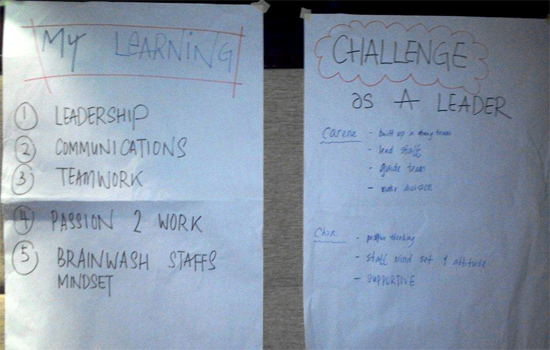 My LEARNiNG
1 LEADERSHIP
2 COMMUNICATIONS
3 TEAMWORK
4 PASSION 2 WORK
5 BRAINWASH STAFFS
MINDSET
CHALLENGE
as A LEADER
- built up a team
- lead staff
- guide team
- make
- thinking
- staff mind set & attitude
- SUPPORTIVE